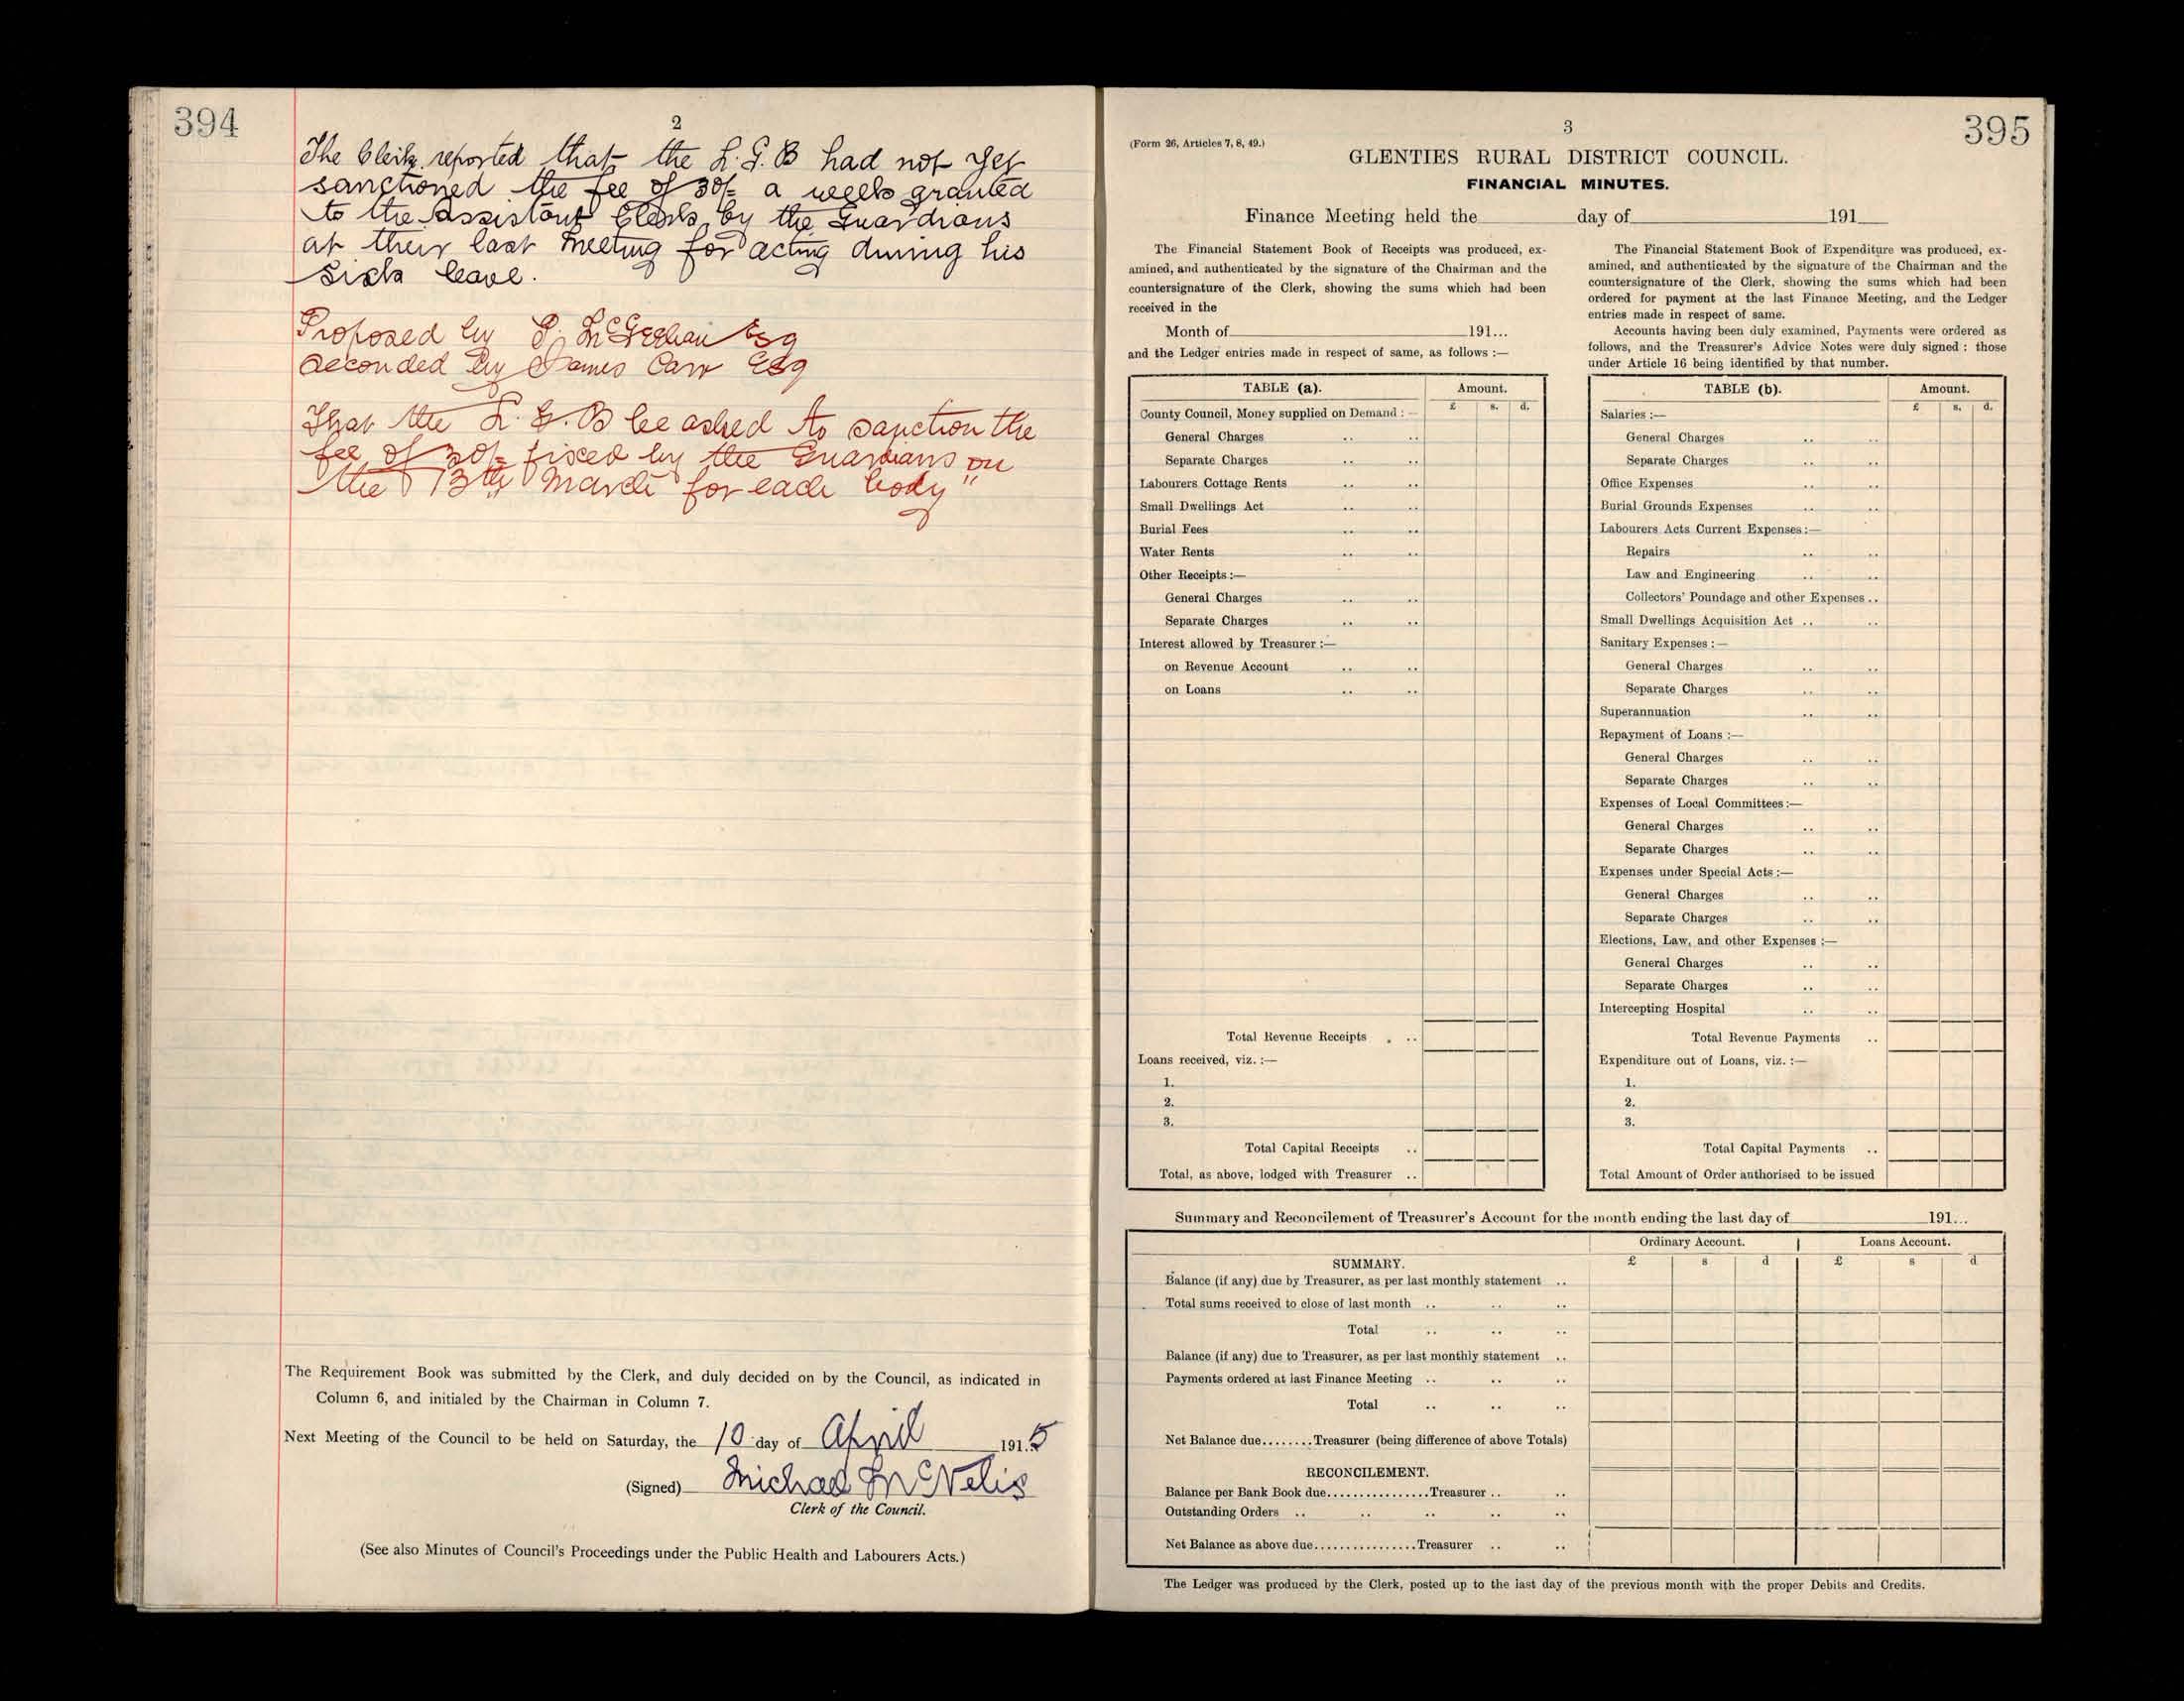 394
2
The Clerk reported that the L.G.B had not yet
sanctioned the fee of 30/= a week granted
to the Assistant Clerk by the Guardians
at their last meeting for acting during his
sick leave.
Proposed by P. McGeehan Esq
Seconded by James Carr Esq
That the L.G.B be asked to sanction the
fee of 30/= fixed by the Guardians on
the 13th March for each body"
The Requirement Book was submitted by the Clerk, and duly decided on by the Council, as indicated in
Column 6, and initialed by the Chairman in Column 7.
Next Meeting of the Council to be held on Saturday, the 10 day of April 1915
(Signed) Michael McNelis
Clerk of the Council.
(See also Minutes of Council's Proceedings under the Public Health and Labourers Acts.)
3
395
(Form 26, Articles 7, 8, 49.)
GLENTIES RURAL DISTRICT COUNCIL.
FINANCIAL MINUTES.
Finance Meeting held the day of 191
The Financial Statement Book of Receipts was produced, ex-
amined, and authenticated by the signature of the Chairman and the
countersignature of the Clerk, showing the sums which had been
received in the
Month of 191...
and the Ledger entries made in respect of same, as follows :—
TABLE (a). Amount.
£ s. d.
County Council, Money supplied on Demand :—
General Charges .. ..
Separate Charges .. ..
Labourers Cottage Rents .. ..
Small Dwellings Act .. ..
Burial Fees .. ..
Water Rents .. ..
Other Receipts :—
General Charges .. ..
Separate Charges .. ..
Interest allowed by Treasurer :—
on Revenue Account .. ..
on Loans .. ..
Total Revenue Receipts . ..
Loans received, viz. :—
1.
2.
3.
Total Capital Receipts ..
Total, as above, lodged with Treasurer ..
The Financial Statement Book of Expenditure was produced, ex-
amined, and authenticated by the signature of the Chairman and the
countersignature of the Clerk, showing the sums which had been
ordered for payment at the last Finance Meeting, and the Ledger
entries made in respect of same.
Accounts having been duly examined, Payments were ordered as
follows, and the Treasurer's Advice Notes were duly signed : those
under Article 16 being identified by that number.
TABLE (b). Amount.
£ s. d.
Salaries :—
General Charges .. ..
Separate Charges .. ..
Office Expenses .. ..
Burial Grounds Expenses .. ..
Labourers Acts Current Expenses :—
Repairs .. ..
Law and Engineering .. ..
Collectors' Poundage and other Expenses ..
Small Dwellings Acquisition Act .. ..
Sanitary Expenses :—
General Charges .. ..
Separate Charges .. ..
Superannuation .. ..
Repayment of Loans :—
General Charges .. ..
Separate Charges .. ..
Expenses of Local Committees :—
General Charges .. ..
Separate Charges .. ..
Expenses under Special Acts :—
General Charges .. ..
Separate Charges .. ..
Elections, Law, and other Expenses :—
General Charges .. ..
Separate Charges .. ..
Intercepting Hospital .. ..
Total Revenue Payments ..
Expenditure out of Loans, viz. :—
1.
2.
3.
Total Capital Payments ..
Total Amount of Order authorised to be issued
Summary and Reconcilement of Treasurer's Account for the month ending the last day of 191...
Ordinary Account. Loans Account.
SUMMARY. £ s d £ s d
Balance (if any) due by Treasurer, as per last monthly statement ..
Total sums received to close of last month .. .. ..
Total .. .. ..
Balance (if any) due to Treasurer, as per last monthly statement ..
Payments ordered at last Finance Meeting .. .. ..
Total .. .. ..
Net Balance due........Treasurer (being difference of above Totals)
RECONCILEMENT.
Balance per Bank Book due................Treasurer .. ..
Outstanding Orders .. .. .. .. ..
Net Balance as above due................Treasurer .. ..
The Ledger was produced by the Clerk, posted up to the last day of the previous month with the proper Debits and Credits.